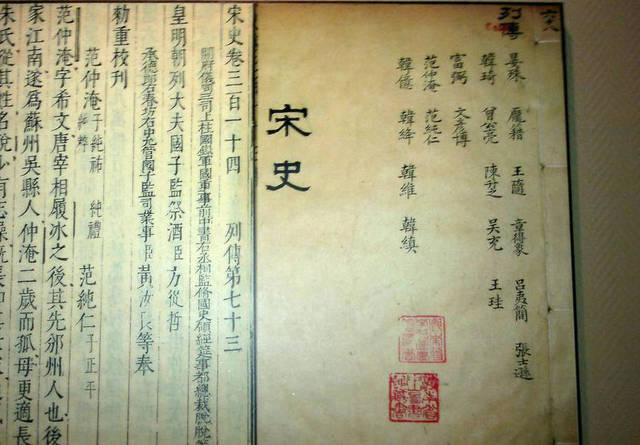 六八
列傳
晏殊 龐籍 王隨 章得象 呂夷簡 張士遜
韓琦 曾公亮 陳升之 吳充 王珪
富弼 文彥博
范仲淹 范純仁
韓億 韓絳 韓維 韓縝
宋史
宋史卷三百一十四 列傳第七十三
開府儀同三司上柱國錄軍國重事前中書右丞相監修國史領經筵事都總裁脫脫
皇明朝列大夫國子監祭酒臣方從哲
承德郎右春坊右中允管國子監司業事臣黃汝良等奉
勑重校刊
范仲淹子純祐 純禮 純粹 范純仁子正平
范仲淹字希文唐宰相履冰之後其先邠州人也後
家江南遂爲蘇州吳縣人仲淹二歲而孤母更適長
朱氏從其姓名說少有志操既長知